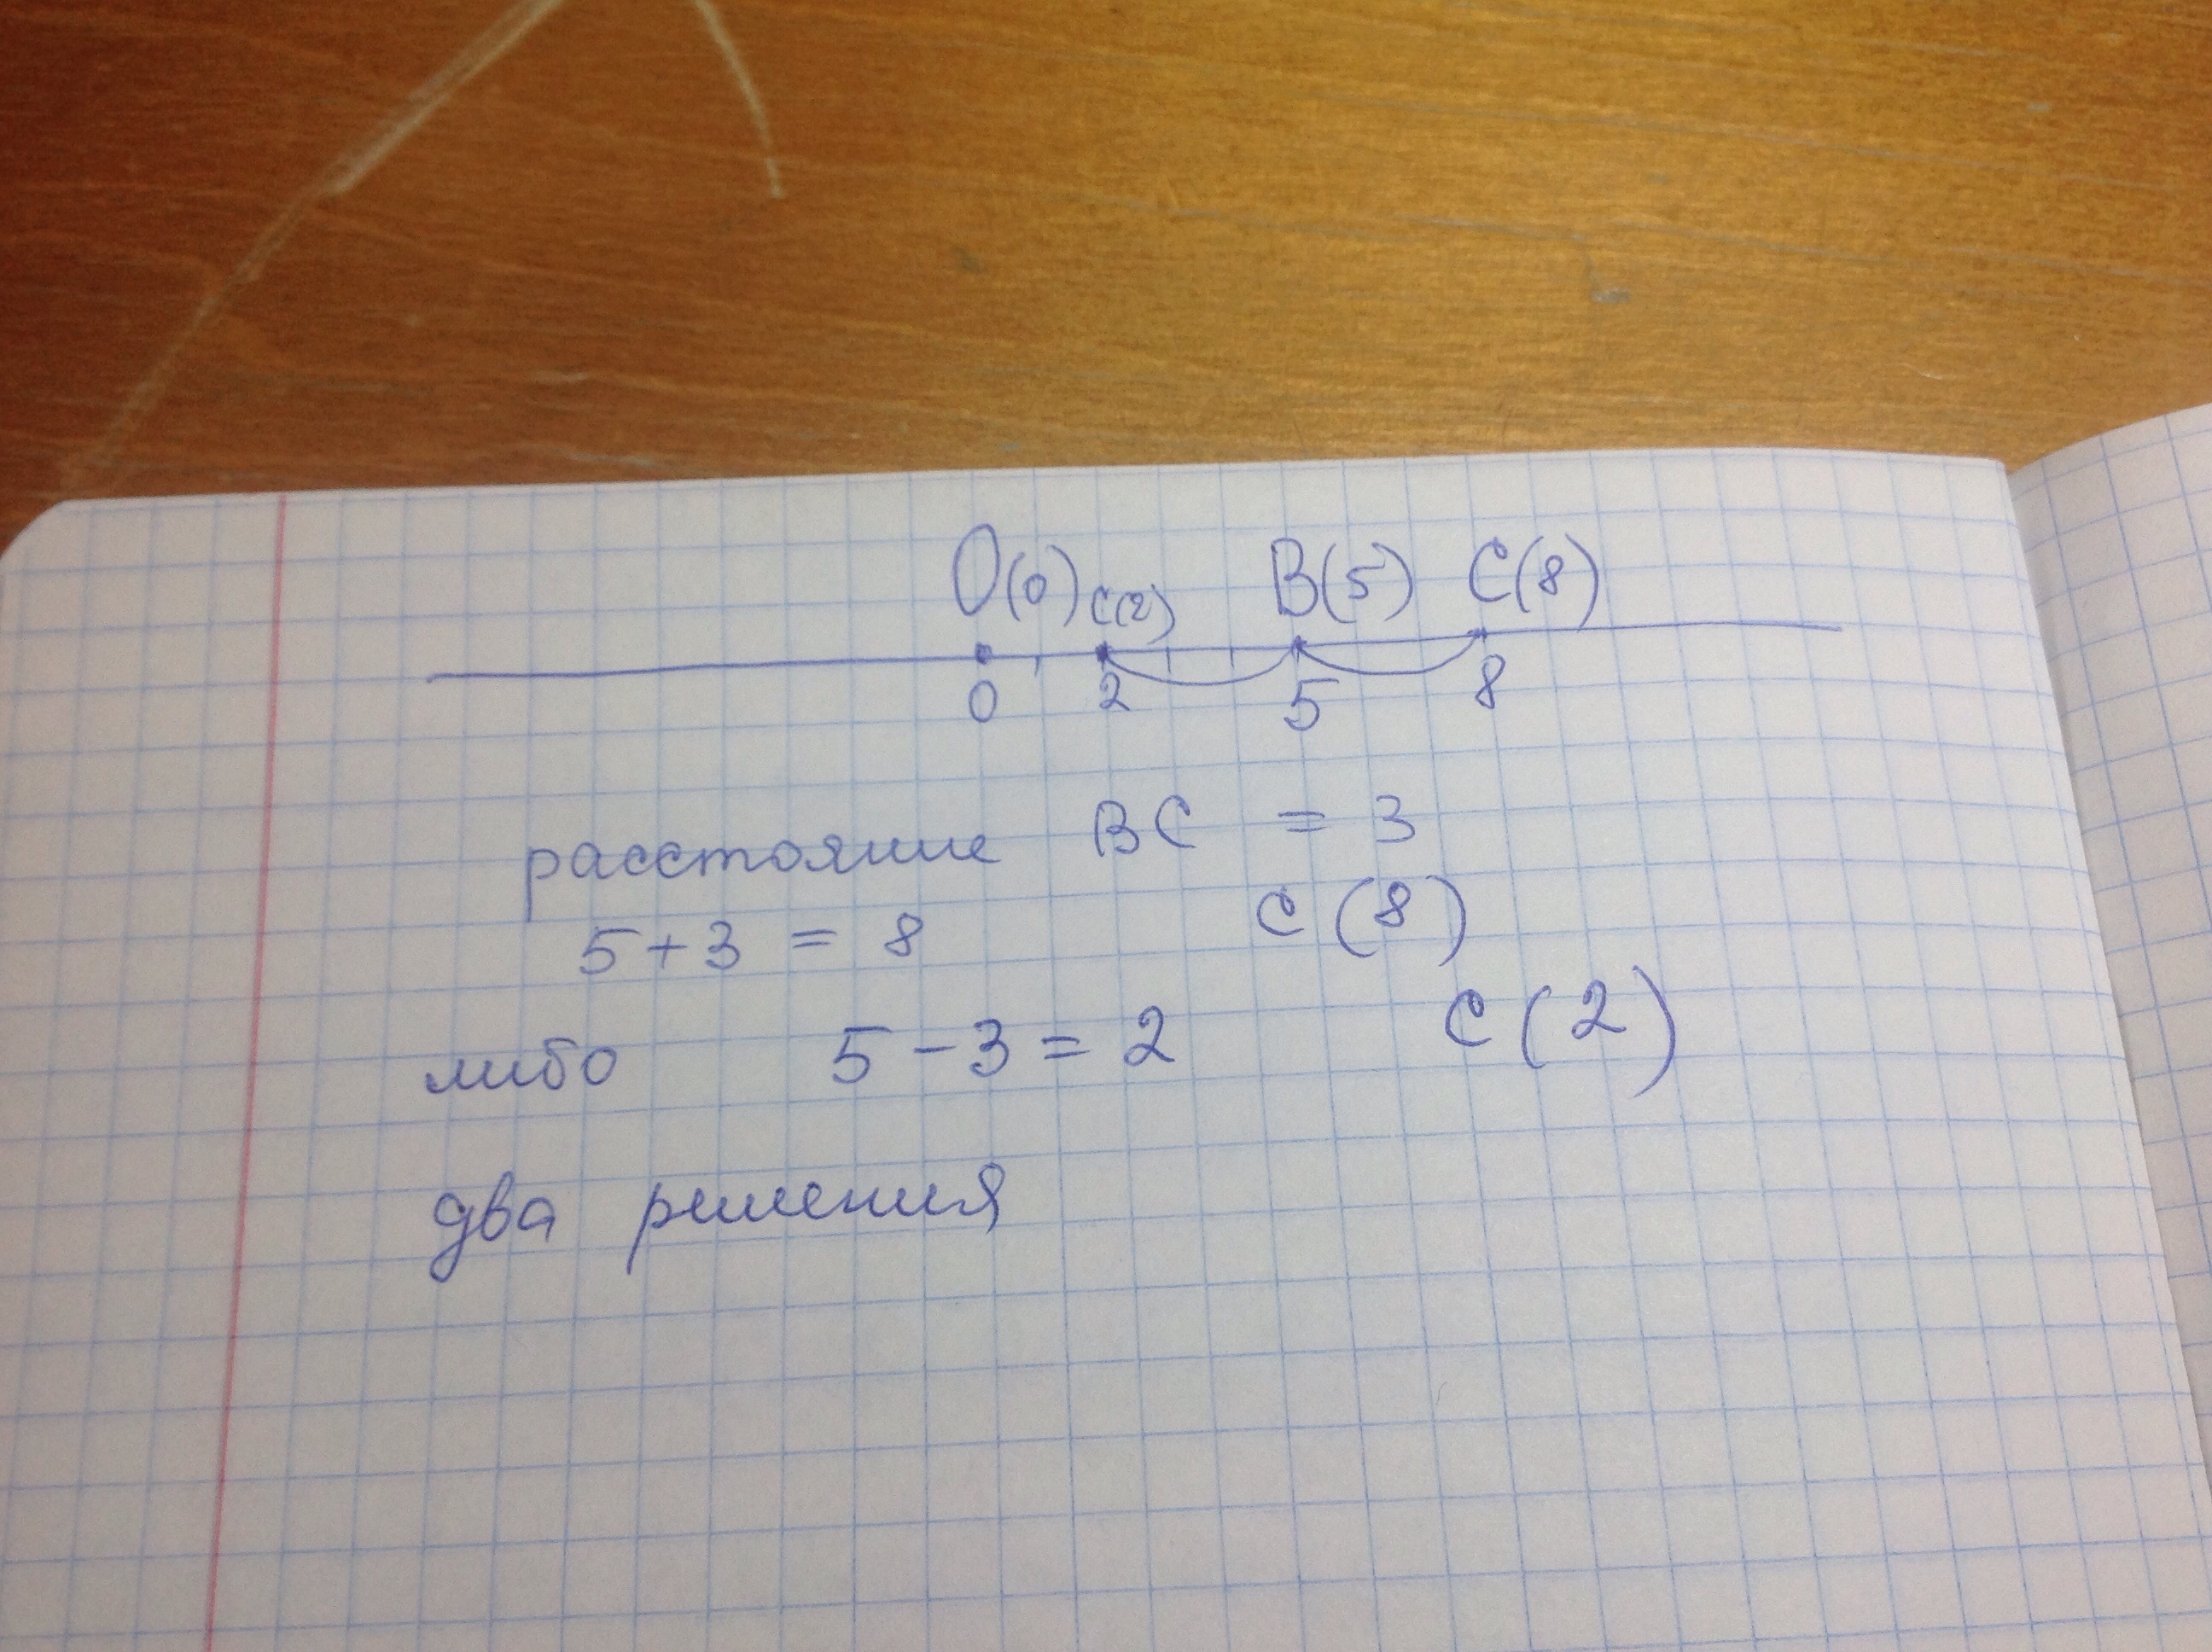 O(0) C(2) B(5) C(8)
0 2 5 8
расстояние BC = 3
5+3 = 8 C(8)
либо 5-3=2 C(2)
два решения